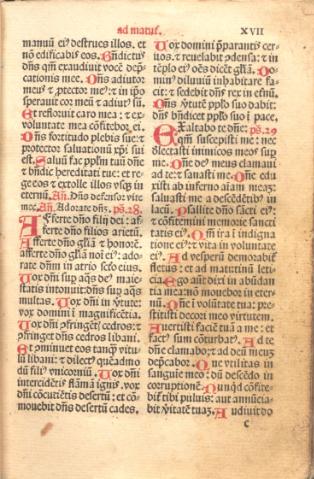 ad matuť. XVII
manuū ei⁹ destrues illos. et
nō edificabis eos. Bn̄dictus
dn̄s qm̄ exaudiuit vocē dep̄-
cationis mee. Dn̄s adiutor
meus ⁊ ꝓtector me⁹: ⁊ in ip̄o
sperauit cor meū ⁊ adiut⁹ sū.
Et refloruit caro mea : et ex
voluntate mea cōfitebor ei.
Dn̄s fortitudo plebis sue: et
protector saluationū xp̄i sui
est. Saluū fac pplm̄ tuū dn̄e
et bn̄dic hereditati tue: et re
ge eos ⁊ extolle illos vsq̄ in
eternū. An̄. Dn̄s defensor vite
mee. An̄. Adorate dn̄m. ps.28.
Afferte dn̄o filij dei : af
ferte dn̄o filios arietū.
Afferte dn̄o gl̄iā ⁊ honorē.
afferte dn̄o gl̄iā noī ei⁹: ado
rate dn̄m in atrio scō eius.
Vox dn̄i sup aq̄s de⁹ maie-
statis intonuit: dn̄s sup aq̄s
multas. Vox dn̄i in v̄tute:
vox domini ī magnificētia.
Vox dn̄i ꝯfringēt̄ cedros: ⁊
ꝯfringet dn̄s cedros libani.
Et ꝯminuet eos tanq̄ vitulū
libani: ⁊ dilect⁹ quēadmo
dū fili⁹ vnicorniū. Vox dn̄i
intercidētis flāmā ignis. vox
dn̄i cōcutiētis desertū: et cō
mouebit dn̄s desertū cades.
Vox domini p̄parantis cer
uos. ⁊ reuelabit ꝯdensa : ⁊ in
tēplo ei⁹ oēs dicēt gl̄iā. Do-
min⁹ diluuiū inhabitare fa-
cit: ⁊ sedebit dn̄s rex in etnū.
Dn̄s v̄tutē pplo suo dabit:
dn̄s bn̄dicet pplo suo ī pace.
Exaltabo te dn̄e: ps.29
qm̄ suscepisti me : nec
delectasti inimicos meos sup
me. Dn̄e de⁹ meus clamaui
ad te: ⁊ sanasti me. Dn̄e edu
xisti ab inferno aīam meā:
saluasti me a descēdētib⁹ in
lacū. Psallite dn̄o sancti ei⁹:
⁊ cōfitemini memorie sancti
tatis ei⁹. Qm̄ ira ī indigna
tione ei⁹: ⁊ vita in voluntate
ei⁹. Ad vesperū demorabit̄
fletus: et ad matutinū leti-
cia. Ego aūt dixi in abūdā
tia mea: nō mouebor in eter-
nū. Dn̄e ī volūtate tua: pre-
stitisti decori meo virtutem.
Auertisti faciē tuā a me : et
fact⁹ sum cōturbat⁹. Ad te
dn̄e clamabo: ⁊ ad deū meū
dep̄cabor. Que vtilitas in
sanguie meo: dū descēdo in
corruptionē. Nunqd̄ cōfite-
bit̄ tibi puluis: aut annūcia-
bit v̄itatē tuā. Audiuit do
c